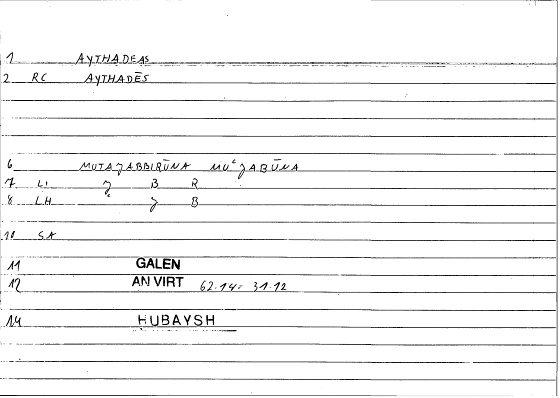 1 AYTHADEAS
2 RC AYTHADĒS
6 MUTAJABBIRŪNA MUʿJABŪNA
7 LI J B R
8 LH ʿ J B
10 SA
11 GALEN
12 AN VIRT 62.14= 31.12
14 HUBAYSH